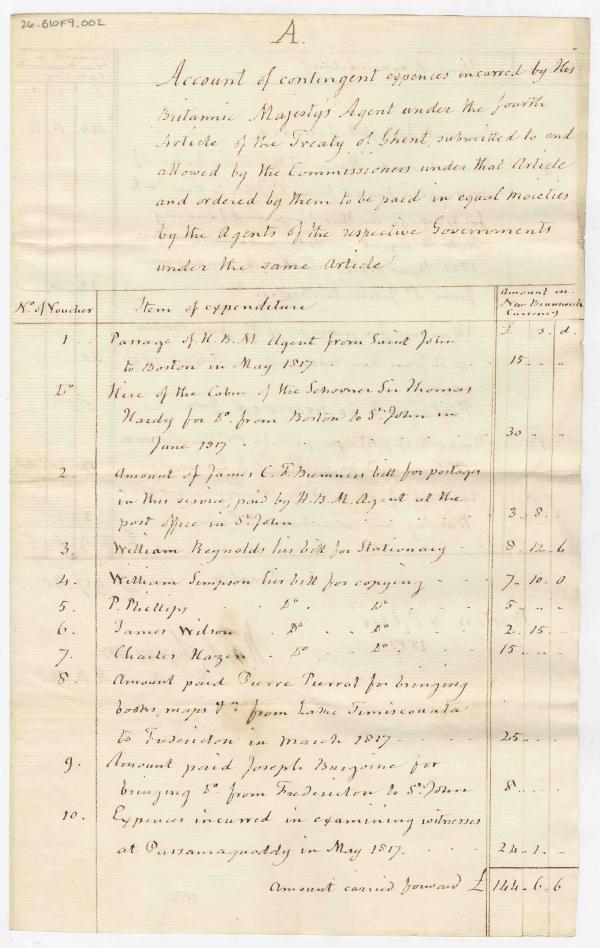 26-B10F9-002
A.
Account of contingent expences incurred by His
Britannic Majesty's Agent under the fourth
Article of the Treaty of Ghent, submitted to and
allowed by the Commissioners under that Article
and ordered by them to be paid in equal moieties
by the Agents of the respective Governments
under the same Article
No. of Voucher Item of expenditure Amount in New Brunswick Currency
£ s. d.
1 Passage of H. B. M. Agent from Saint John
to Boston in May 1817 15 " "
Do Hire of the Cabin of the Schooner Sir Thomas
Hardy for Do. from Boston to St. John in
June 1817 30 " "
2. Amount of James C. F. Bremners bill for postages
in this service, paid by H. B. M. Agent at the
post office in St. John 3 - 8 -
3. William Reynolds his bill for Stationary 8 - 12 - 6
4. William Simpson his bill for copying 7 - 10 - 0
5. P. Phillips Do. Do. 5 - " -
6. James Wilson Do. Do. 2 - 15 -
7. Charles Hazen Do. Do. 15 - - -
8. Amount paid Pierre Pierrot for bringing
books, maps &c. from Lake Timiscouata
to Fredericton in March 1817 25 - - -
9. Amount paid Joseph Burgoine for
bringing Do. from Fredericton to St. John 8 - - -
10. Expences incurred in examining witnesses
at Passamaquoddy in May 1817. 24 - 1 -
Amount carried forward £ 144 - 6 - 6